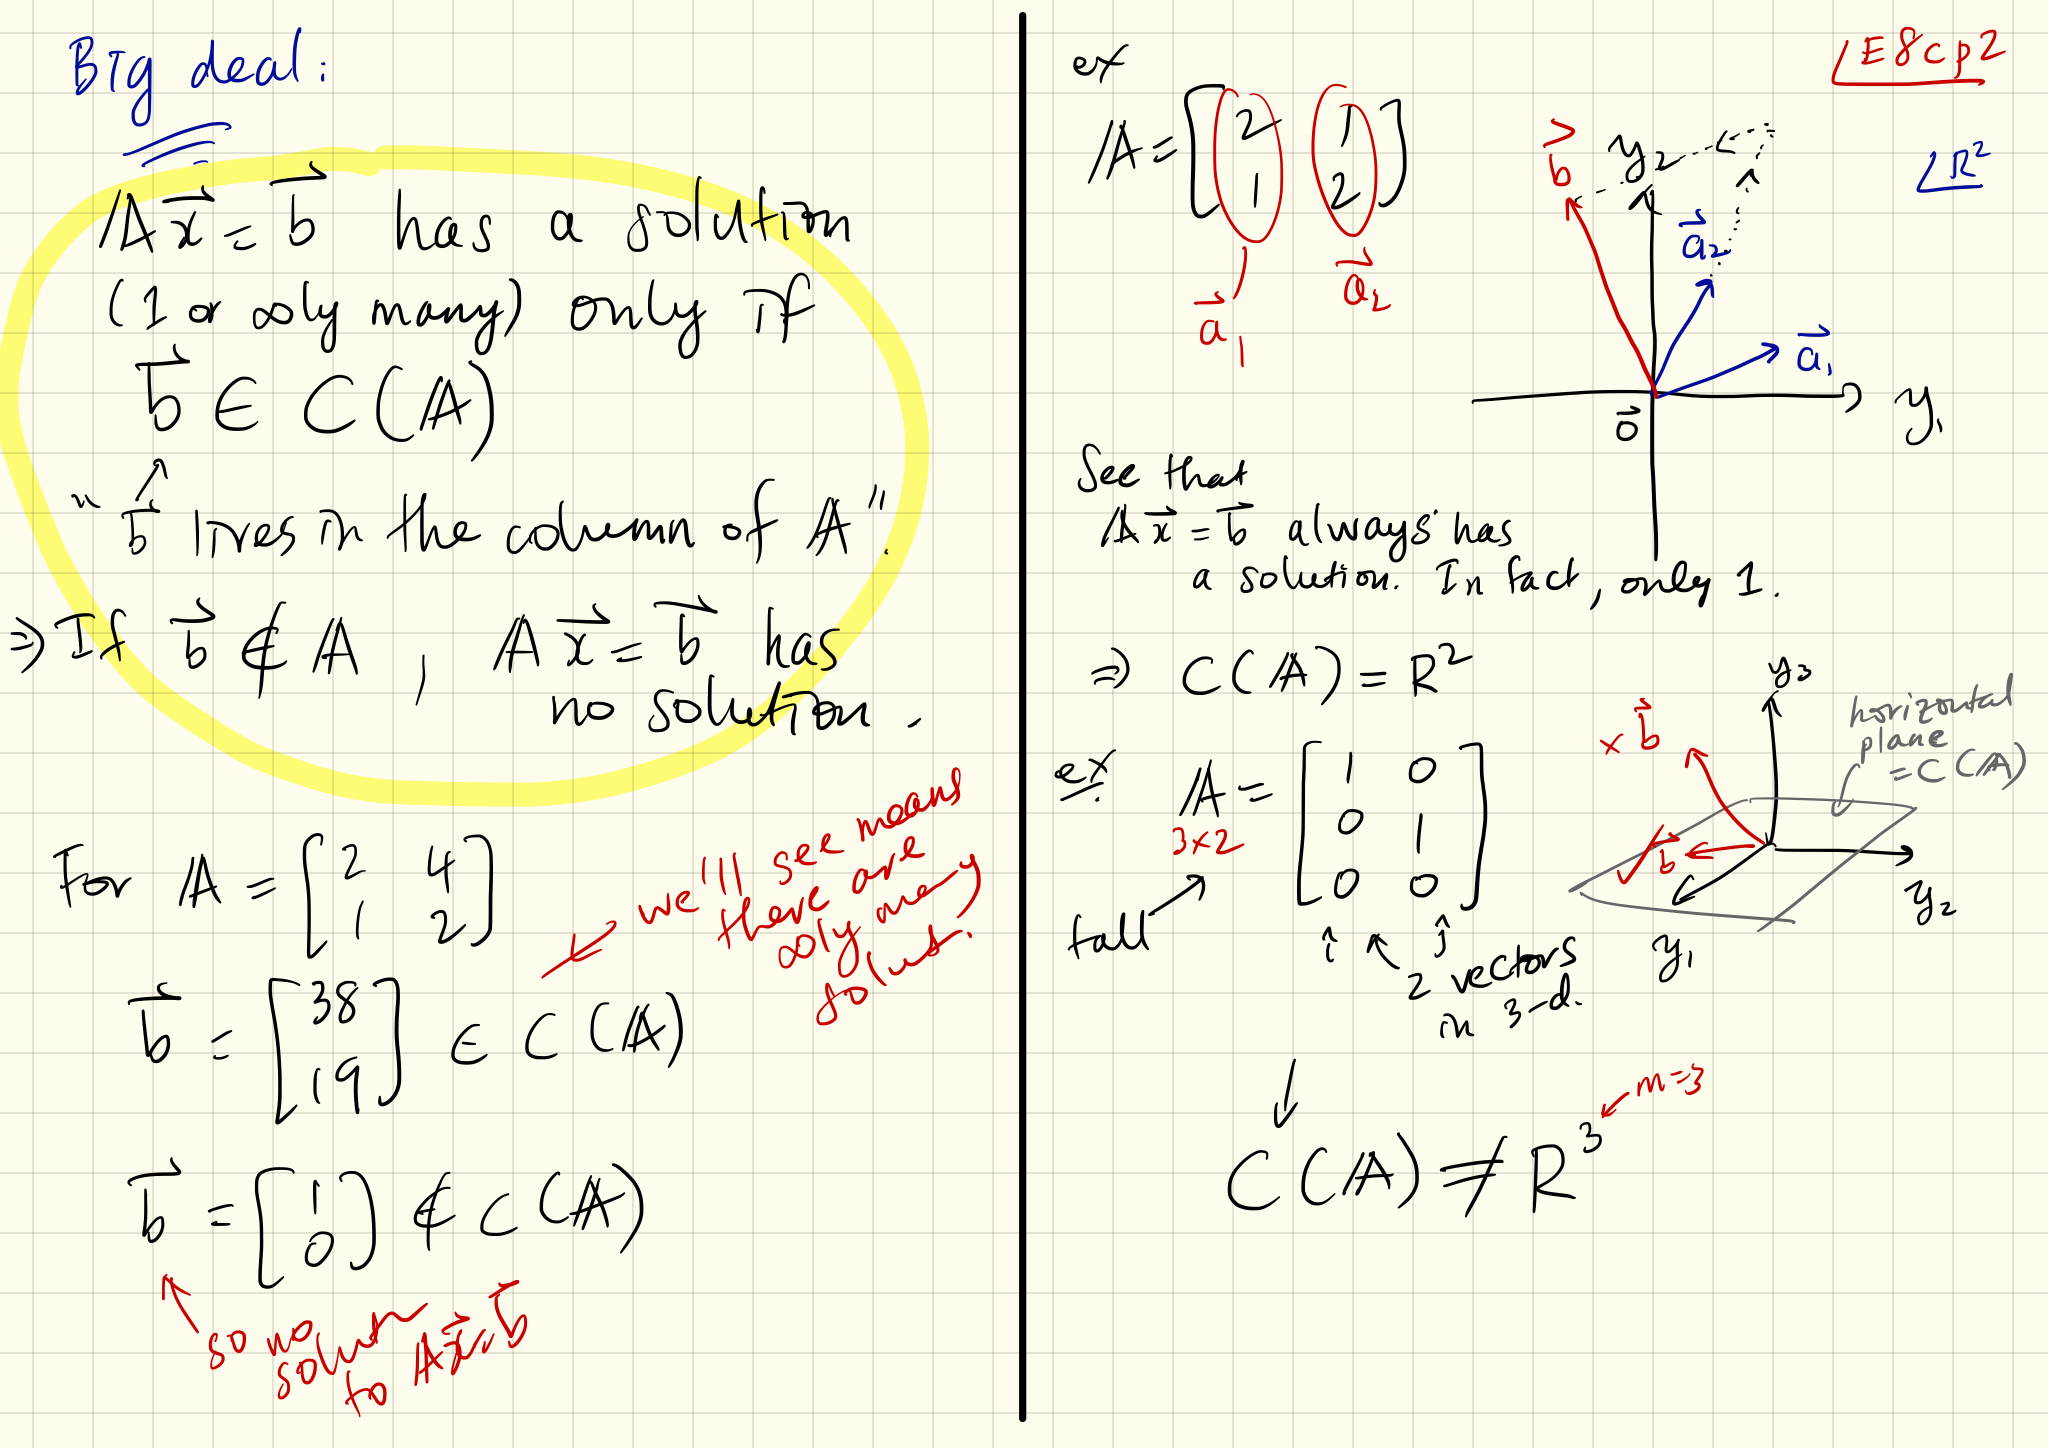 Big deal:
A x⃗ = b⃗ has a solution
(1 or ∞ly many) only if
b⃗ ∈ C(A)
"b⃗ lives in the column of A".
⇒ If b⃗ ∉ A, A x⃗ = b⃗ has
no solution.
For A = [2 4
1 2]
we'll see means
there are
∞ly many
solut.
b⃗ = [38
19] ∈ C(A)
b⃗ = [1
0] ∉ C(A)
so no
solut
to A x⃗ = b⃗
E8cp2
ex
A = [2 1
1 2]
a⃗1
a⃗2
R²
b⃗
y2
a⃗2
a⃗1
0⃗
y1
See that
A x⃗ = b⃗ always has
a solution. In fact, only 1.
⇒ C(A) = R²
ex
A = [1 0
0 1
0 0]
3x2
tall
î ĵ
2 vectors
in 3-d.
y3
horizontal
plane
= C(A)
x b⃗
✓ b⃗
y2
y1
↓
C(A) ≠ R³
m=3